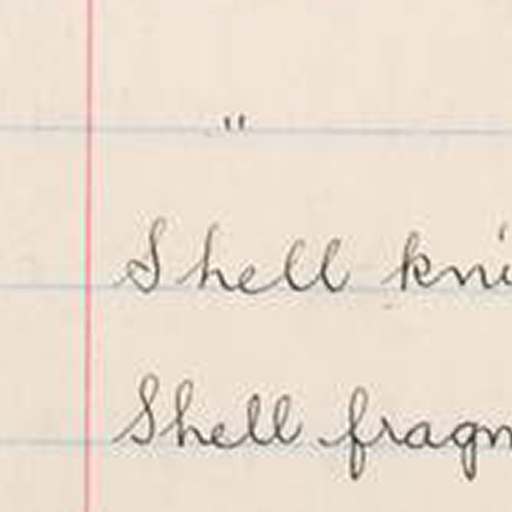 "
Shell kni
Shell fragm